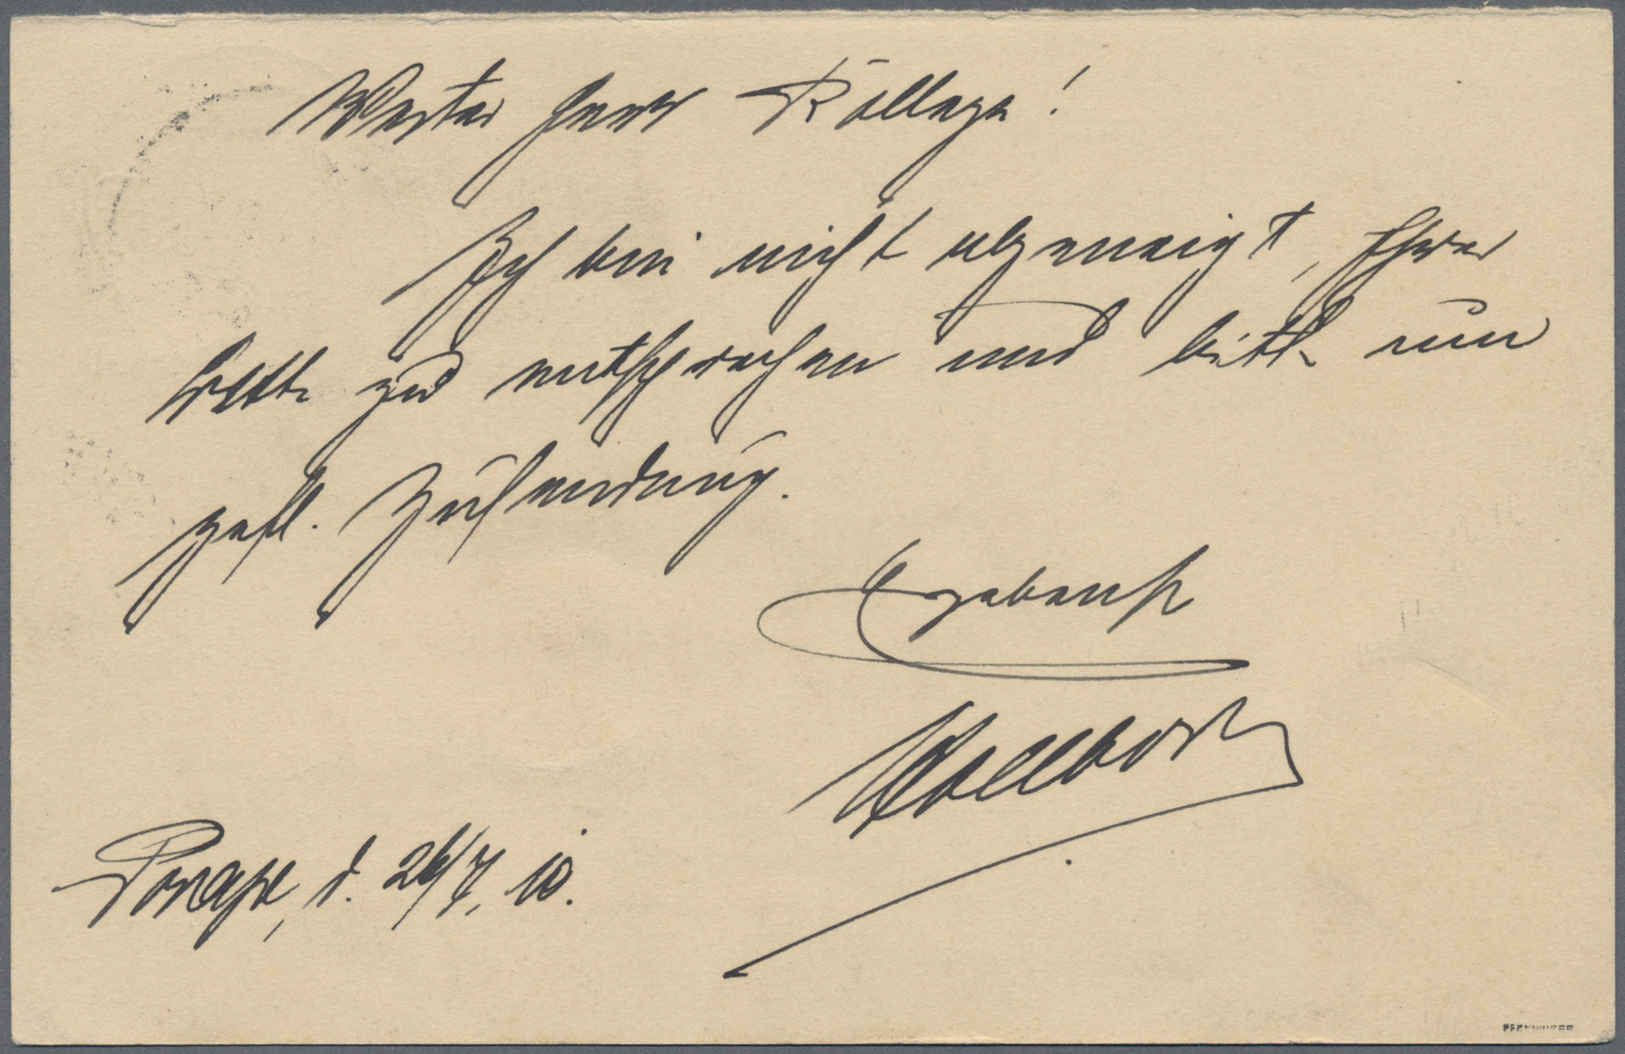 Werter Herr Kollege!
Ich bin nicht abgeneigt, Ihrer
Bitte zu entsprechen und bitte um
gefl. Zusendung.
Ergebenst
Ponape, d. 26/7. 10.